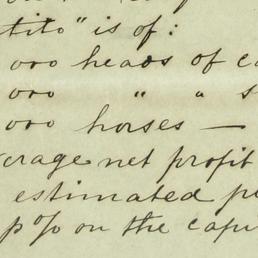 tito" is of:
000 heads of ca
000 " " s
000 horses —
erage net profit
estimated pe
p% on the capi